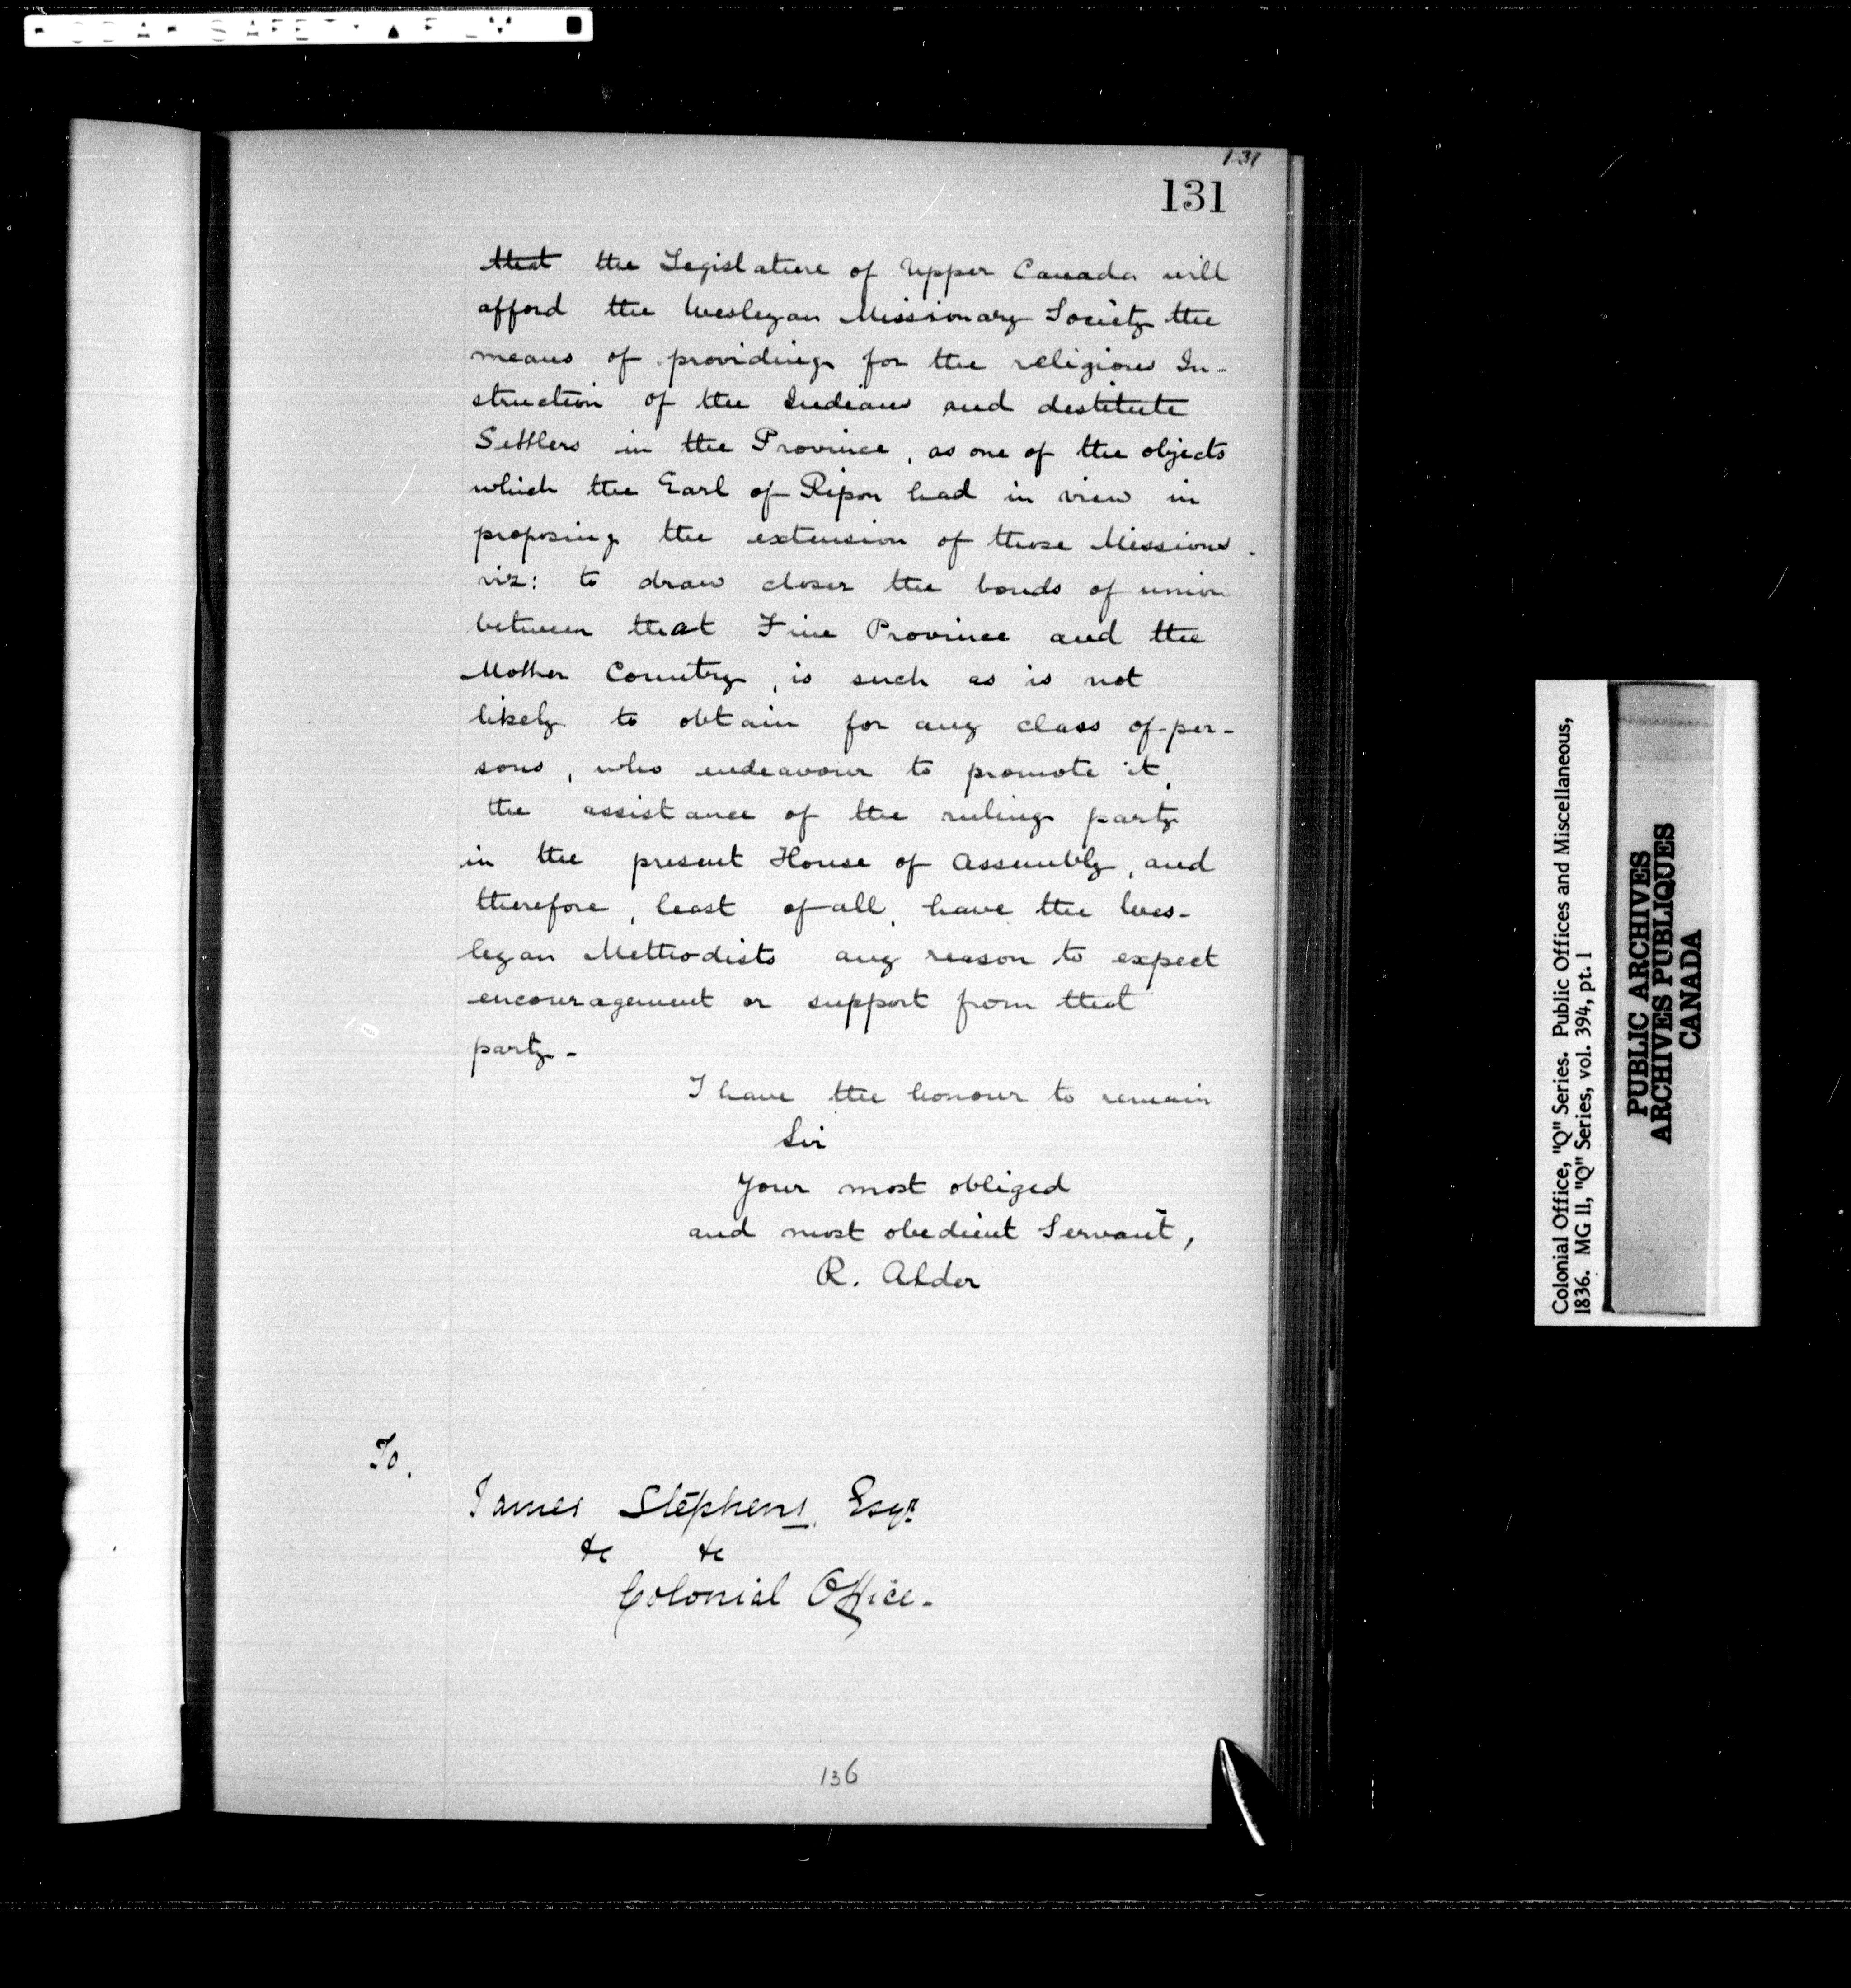 131
131
~~that~~ the Legislature of Upper Canada will
afford the Wesleyan Missionary Society the
means of providing for the religious In-
struction of the Indians and destitute
Settlers in the Province, as one of the objects
which the Earl of Ripon had in view in
proposing the extension of those Missions.
viz: to draw closer the bonds of union
between that Fine Province and the
Mother Country, is such as is not
likely to obtain for any class of per-
sons, who endeavour to promote it,
the assistance of the ruling party
in the present House of Assembly, and
therefore, least of all, have the Wes-
leyan Methodists any reason to expect
encouragement or support from that
party-
I have the honour to remain
Sir
Your most obliged
and most obedient Servant,
R. Alder
To.
James Stephens, Esqr.
&c &c
Colonial Office.
136
Colonial Office, "Q" Series. Public Offices and Miscellaneous,
1836. MG 11, "Q" Series, vol. 394, pt. 1
PUBLIC ARCHIVES
ARCHIVES PUBLIQUES
CANADA